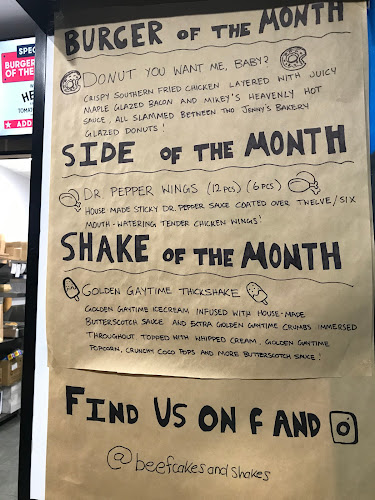 BURGER OF THE MONTH
DONUT YOU WANT ME, BABY?
CRISPY SOUTHERN FRIED CHICKEN LAYERED WITH JUICY
MAPLE GLAZED BACON AND MIKEY'S HEAVENLY HOT
SAUCE, ALL SLAMMED BETWEEN TWO JENNY'S BAKERY
GLAZED DONUTS!
SIDE OF THE MONTH
DR. PEPPER WINGS (12 PCS) (6 PCS)
HOUSE-MADE STICKY DR. PEPPER SAUCE COATED OVER TWELVE/SIX
MOUTH-WATERING TENDER CHICKEN WINGS!
SHAKE OF THE MONTH
GOLDEN GAYTIME THICKSHAKE
GOLDEN GAYTIME ICECREAM INFUSED WITH HOUSE-MADE
BUTTERSCOTCH SAUCE AND EXTRA GOLDEN GAYTIME CRUMBS IMMERSED
THROUGHOUT TOPPED WITH WHIPPED CREAM, GOLDEN GAYTIME
POPCORN, CRUNCHY COCO POPS AND MORE BUTTERSCOTCH SAUCE!
FIND US ON F AND
@beefcakesandshakes
SPEC
BURGER
OF THE
HE
TOMATO
ADD